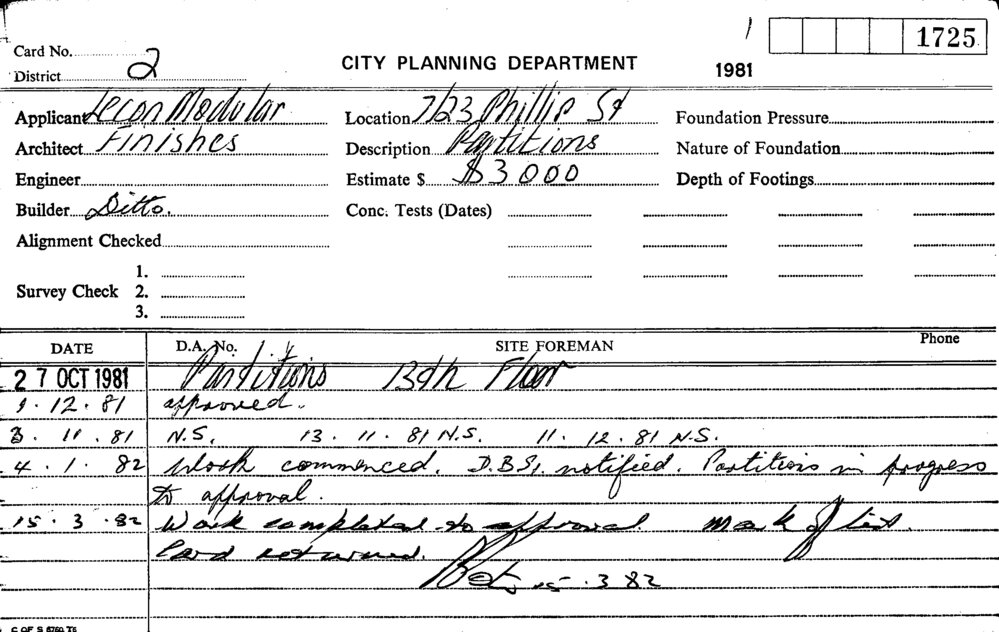 1 1725
Card No.
District 2
CITY PLANNING DEPARTMENT
1981
Applicant Lecon Modular
Location 7/23 Phillip St
Foundation Pressure
Architect Finishes
Description Partitions
Nature of Foundation
Engineer
Estimate $ $3000
Depth of Footings
Builder Ditto.
Conc. Tests (Dates)
Alignment Checked
1.
Survey Check 2.
3.
DATE D.A. No. SITE FOREMAN Phone
27 OCT 1981 Partitions 13th Floor
9.12.81 approved.
3.11.81 N.S. 13.11.81 N.S. 11.12.81 N.S.
4.1.82 Work commenced. D.B.S. notified. Partitions in progress
to approval.
15.3.82 Work completed to approval mark off list.
Card returned.
15.3.82
C OF S 6760 T6